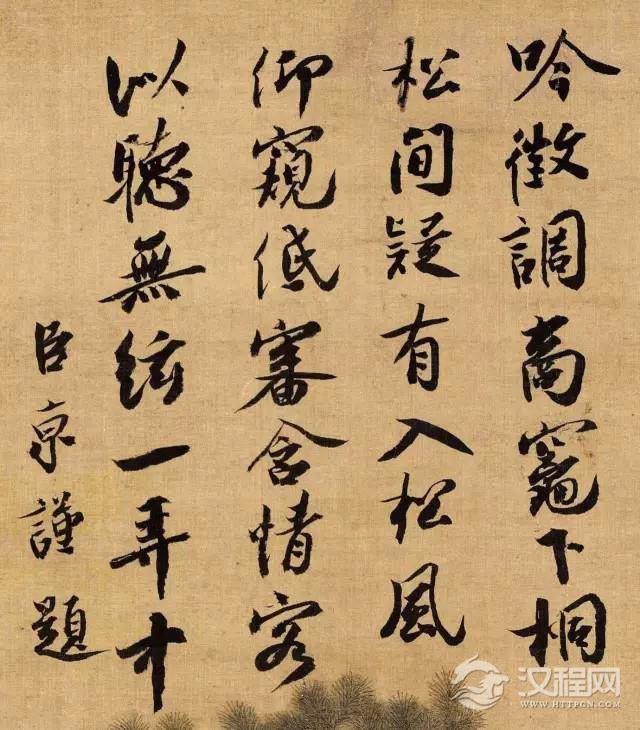 吟徵調商竈下桐
松間疑有入松風
仰窺低審含情客
以聽無絃一弄中
臣京謹題
汉程网
WWW.HTTPCN.COM